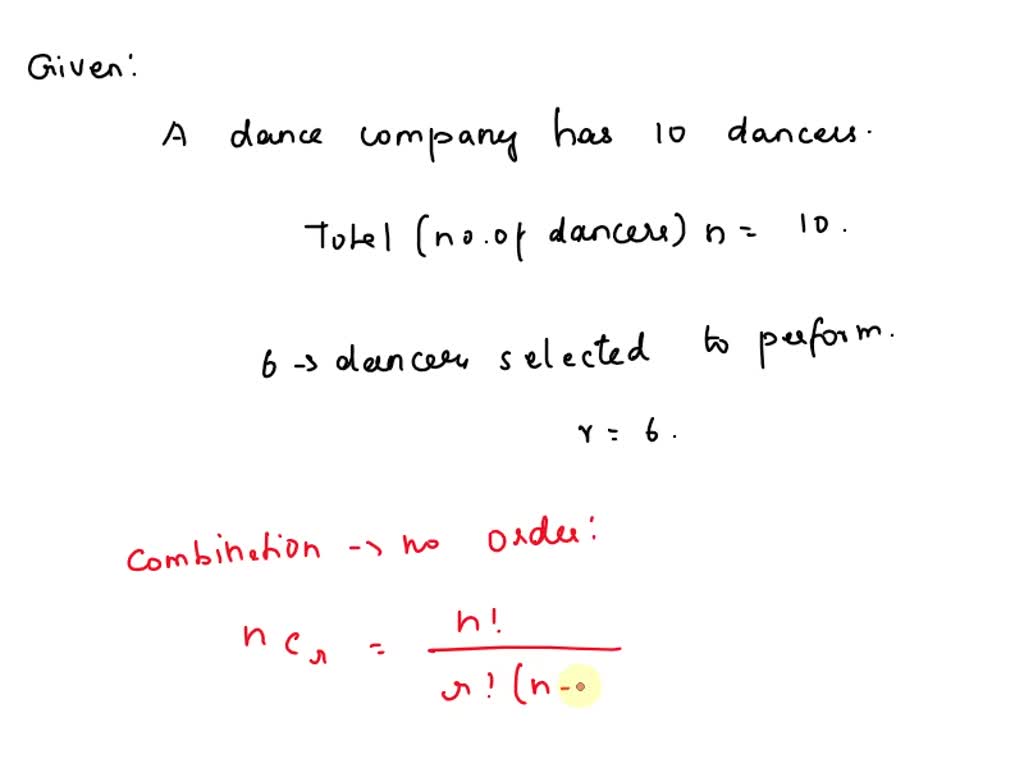 Given:
A dance company has 10 dancers.
Total (no. of dancers) n = 10.
6 → dancers selected to perform.
r = 6.
Combination → no order:
n C r = n!
r! (n -